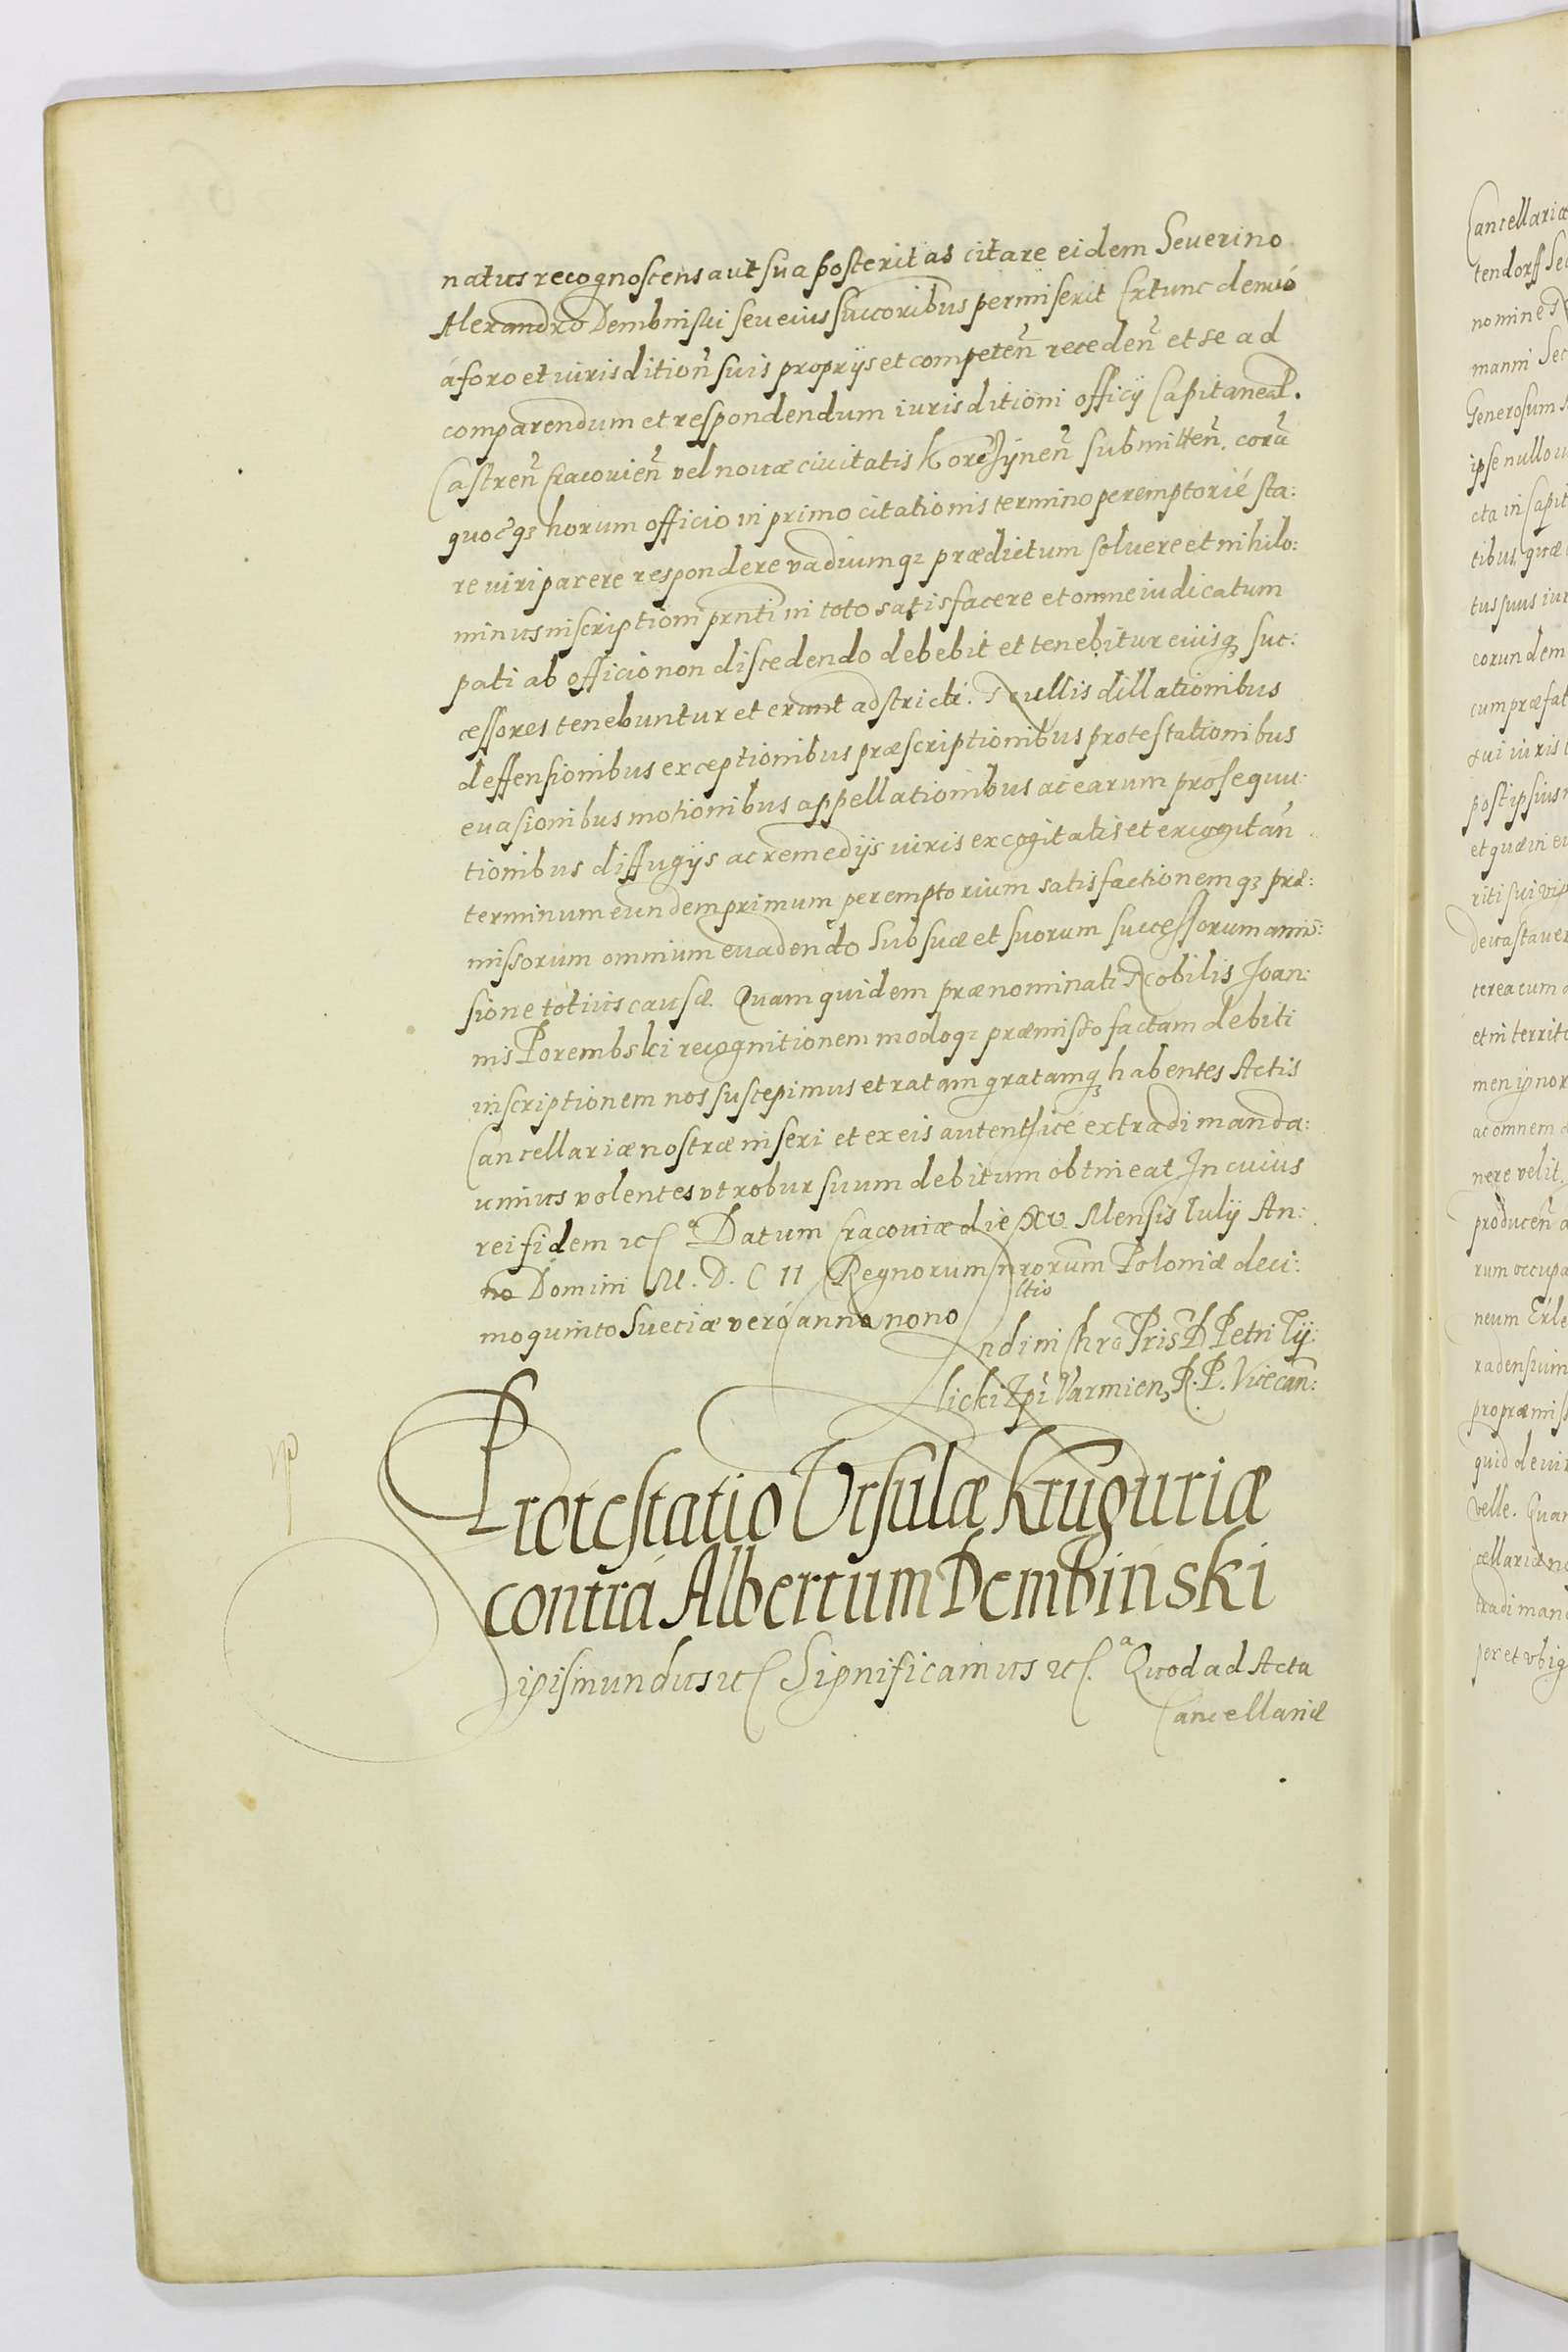 natus recognoscens aut sua posteritas citare eidem Seuerino
Alexandro Dembinski seu eius succoribus permiserit Extunc denuó
á foro et iurisdition̄ suis proprijs et competen̄ receden̄ et se ad
comparendum et respondendum iurisditioni officij Capitaneal.
Castren̄ Cracouien̄ vel nouæ ciuitatis Korczÿnen̄ submitten̄. corā
quocq3 horum officio in primo citationis termino peremptorié sta:
re iuri parere respondere vadiumq3 prædictum soluere et nihilo:
minus inscriptioni prnti in toto satisfacere et omne iudicatum
pati ab officio non discedendo debebit et tenebitur eiusq3 suc:
cessores tenebuntur et erunt adstricti. Nullis dillationibus
deffensionibus exceptionibus præscriptionibus protestationibus
euasionibus motionibus appellationibus ac earum prosequu:
tionibus diffugijs ac remedijs iuris excogitatis et excogitan̄
terminum eundem primum peremptorium satisfactionemq3 præ:
missorum omnium euadendo Sub suæ et suorum successorum amis:
sione totius causæ. Quam quidem prænominati Nobilis Joan:
nis Porembski recognitionem modoq3 præmisso factam debiti
inscriptionem nos suscepimus et ratam gratamq3 habentes Actis
Cancellariæ nostræ inseri et ex eis autentice extradi manda:
uimus volentes vt robur suum debitum obtineat In cuius
rei fidem etc Datum Cracouiæ die XV Mensis Iulij An:
no Domini M. D. C II Regnorum nrorum Poloniæ deci:
mo quinto Sueciæ veró anno nono
ndini Chro Pris D Petri Tÿ:
licki Epi Varmien, R. P. Vicecan:
Protestatio Vrsulæ Kruguriæ
contrá Albertum Dembinski
Sigismundus etc Significamus etc. Quod ad Acta
Cancellariæ
Cancellariæ
tendorff
nomine
manni
Generosum
ipse nullo
cta in
tibus, quæ
tus suus
corundem
cum
post ipsius
et quæ in
riti sui
deuastauer
terea cum
et in
men
ac omnem
nere velit.
producen̄
rum occupa
neum
radensium
quid de
velle.
per et